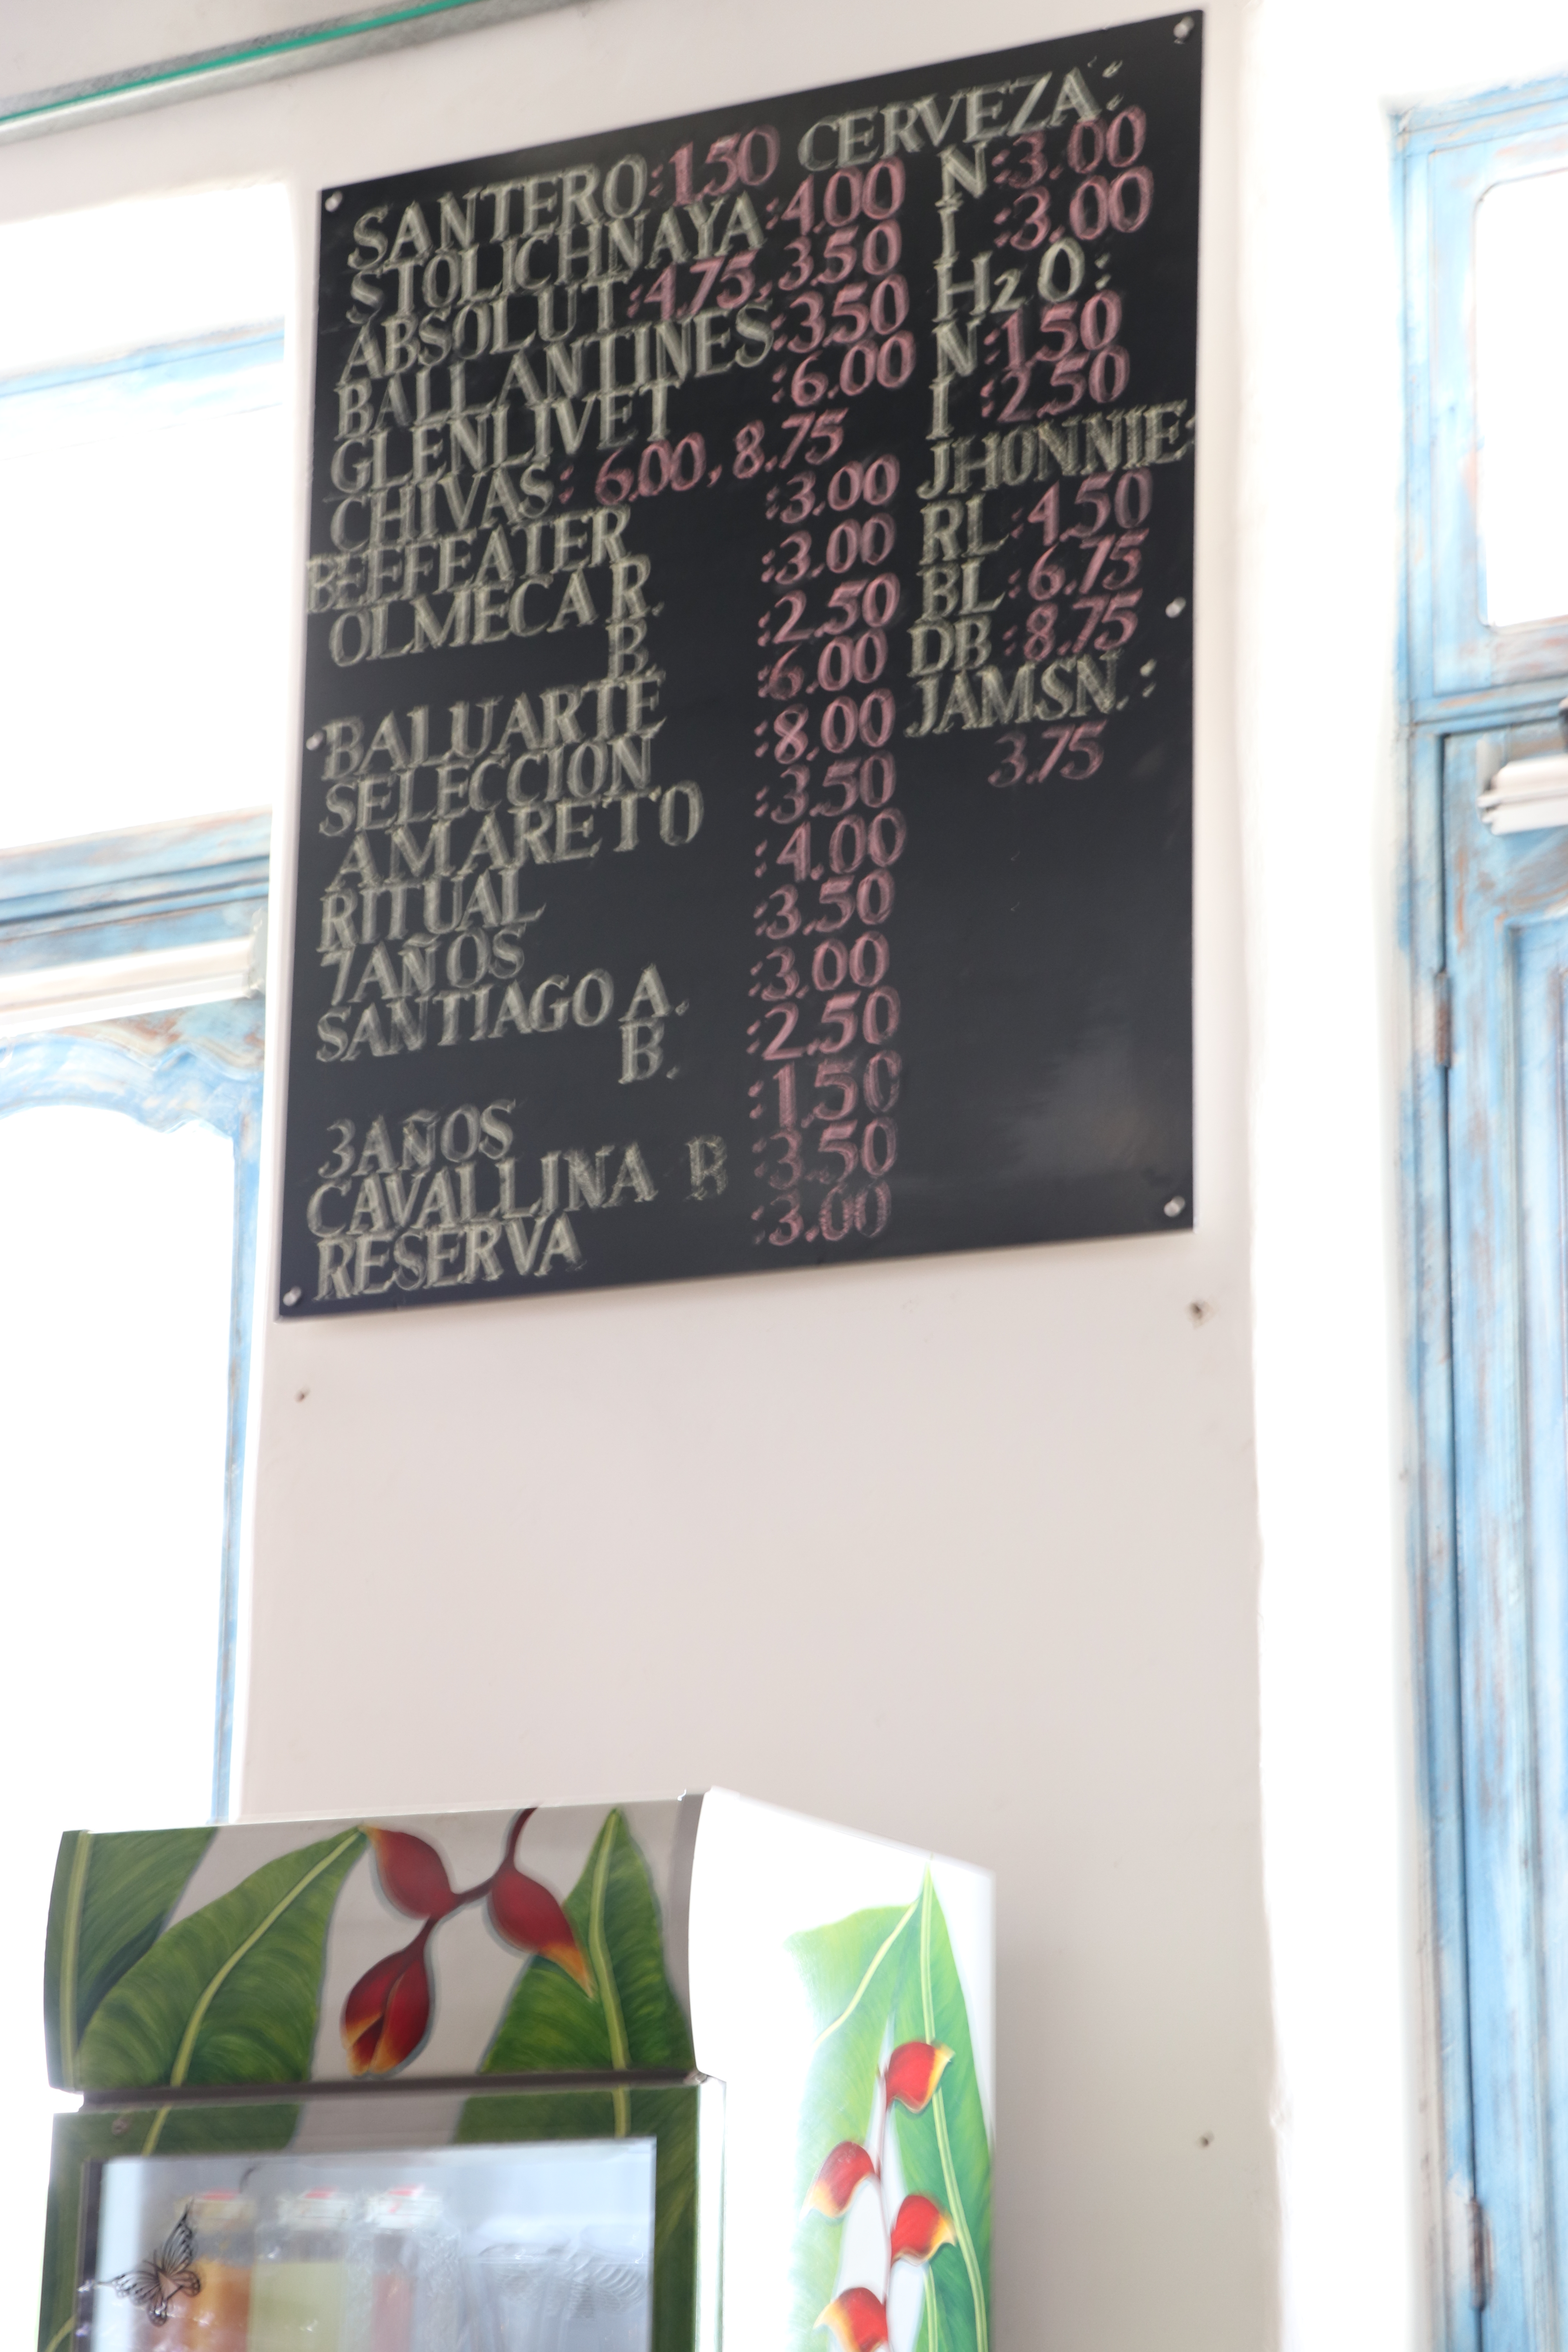 SANTERO:1.50
STOLICHNAYA:4.00
ABSOLUT:4.75,3.50
BALLANTINES:3.50
GLENLIVET :6.00
CHIVAS: 6.00, 8.75
BEFFEATER :3.00
OLMECA R. :3.00
B. :2.50
BALUARTE :6.00
SELECCION :8.00
AMARETO :3.50
RITUAL :4.00
7AÑOS :3.50
SANTIAGO A. :3.00
B. :2.50
3AÑOS :1.50
CAVALLINA :3.50
RESERVA :3.00
CERVEZA:
N:3.00
I :3.00
H2O:
N:1.50
I :2.50
JHONNIE:
RL:4.50
BL:6.75
DB:8.75
JAMSN.:
3.75